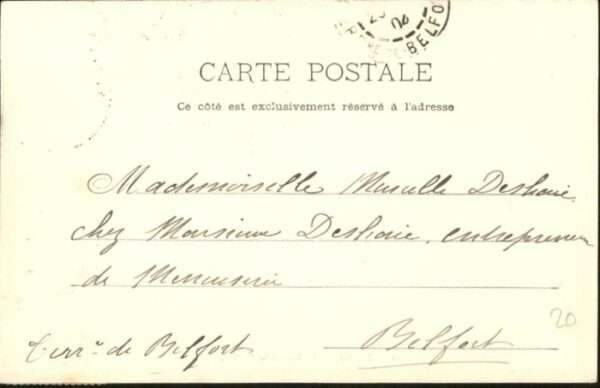 20 04 BELFO
CARTE POSTALE
Ce côté est exclusivement réservé à l'adresse
Mademoiselle Deshaie
chez Monsieur Deshaie, entrepreneur
de Menuiserie
20
Terr.re de Belfort Belfort